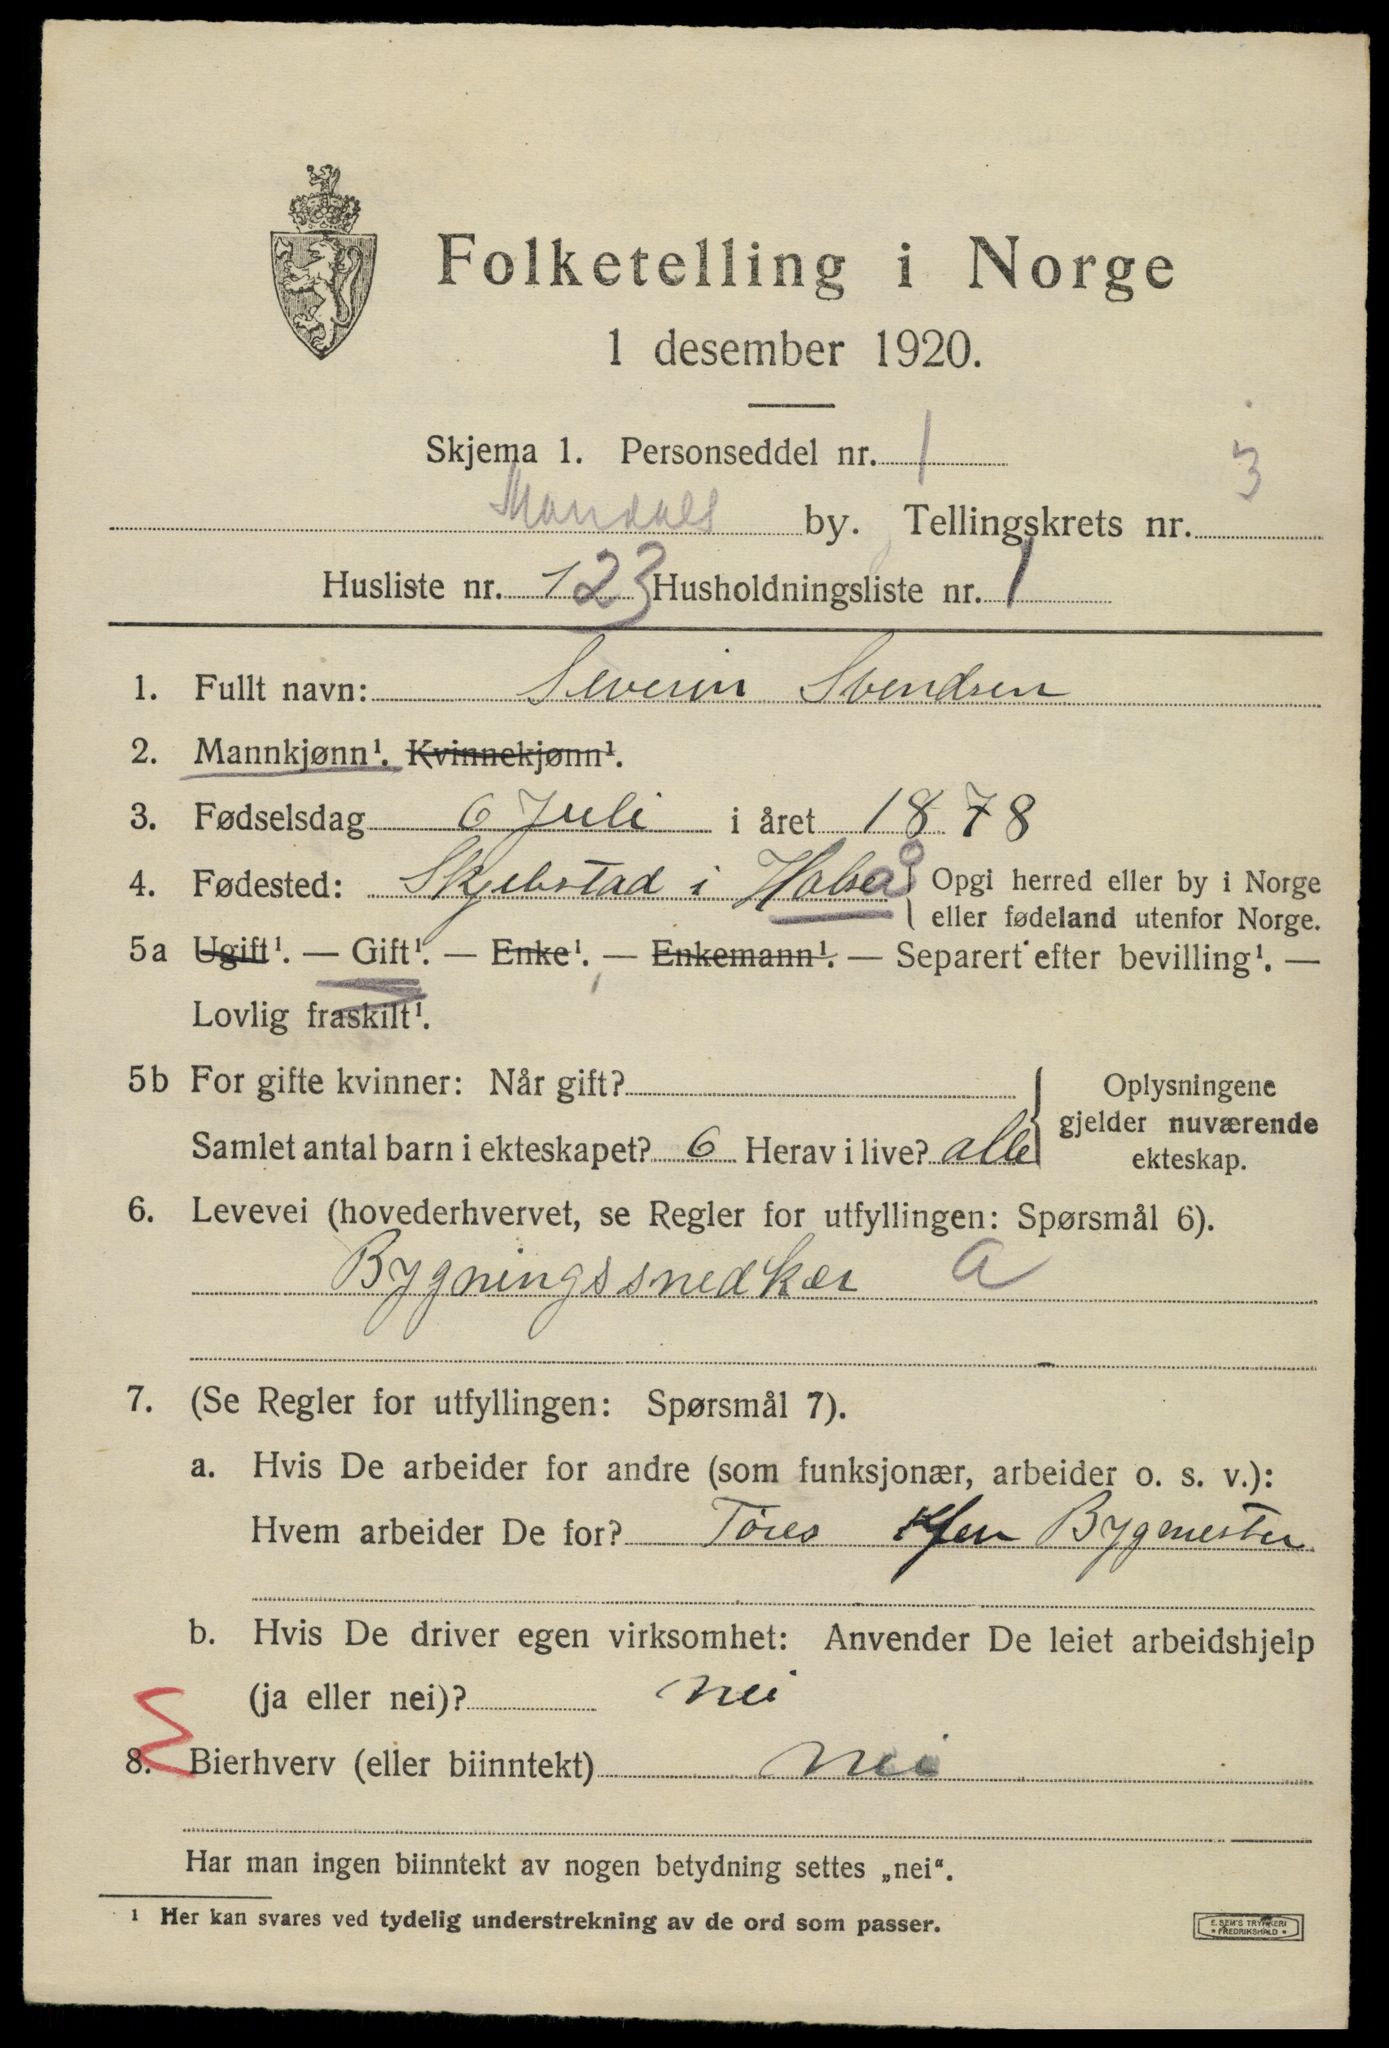 Folketelling i Norge
1 desember 1920.
Skjema 1. Personseddel nr. 1
Mandals by. Tellingskrets nr. 3
Husliste nr. 123 Husholdningsliste nr. 1
1. Fullt navn: Severin Svendsen
2. Mannkjønn¹. Kvinnekjønn¹.
3. Fødselsdag 6 Juli i året 1878
4. Fødested: Skjebstad i Halså Opgi herred eller by i Norge
eller fødeland utenfor Norge.
5a Ugift¹. — Gift¹. — Enke¹. — Enkemann¹. — Separert efter bevilling¹. —
Lovlig fraskilt¹.
5b For gifte kvinner: Når gift?
Samlet antal barn i ekteskapet? 6 Herav i live? alle
Oplysningene
gjelder nuværende
ekteskap.
6. Levevei (hovederhvervet, se Regler for utfyllingen: Spørsmål 6).
Bygningssnedker a
7. (Se Regler for utfyllingen: Spørsmål 7).
a. Hvis De arbeider for andre (som funksjonær, arbeider o. s. v.):
Hvem arbeider De for? Tøres Bygmester
b. Hvis De driver egen virksomhet: Anvender De leiet arbeidshjelp
(ja eller nei)? nei
8. Bierhverv (eller biinntekt) nei
Har man ingen biinntekt av nogen betydning settes „nei“.
¹ Her kan svares ved tydelig understrekning av de ord som passer.
E. SEM'S TRYKKERI
FREDRIKSHALD